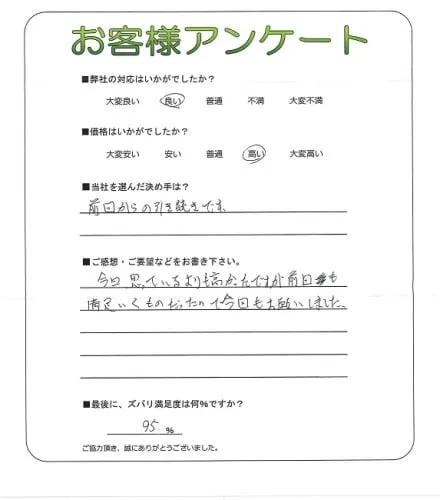 お客様アンケート
■弊社の対応はいかがでしたか？
大変良い 良い 普通 不満 大変不満
■価格はいかがでしたか？
大変安い 安い 普通 高い 大変高い
■当社を選んだ決め手は？
前回からの引き続きです。
■ご感想・ご要望などをお書き下さい。
今回思っているより高かったですが前回も
満足いくものだったので今回もお願いしました。
■最後に、ズバリ満足度は何%ですか？
95 %
ご協力頂き、誠にありがとうございました。